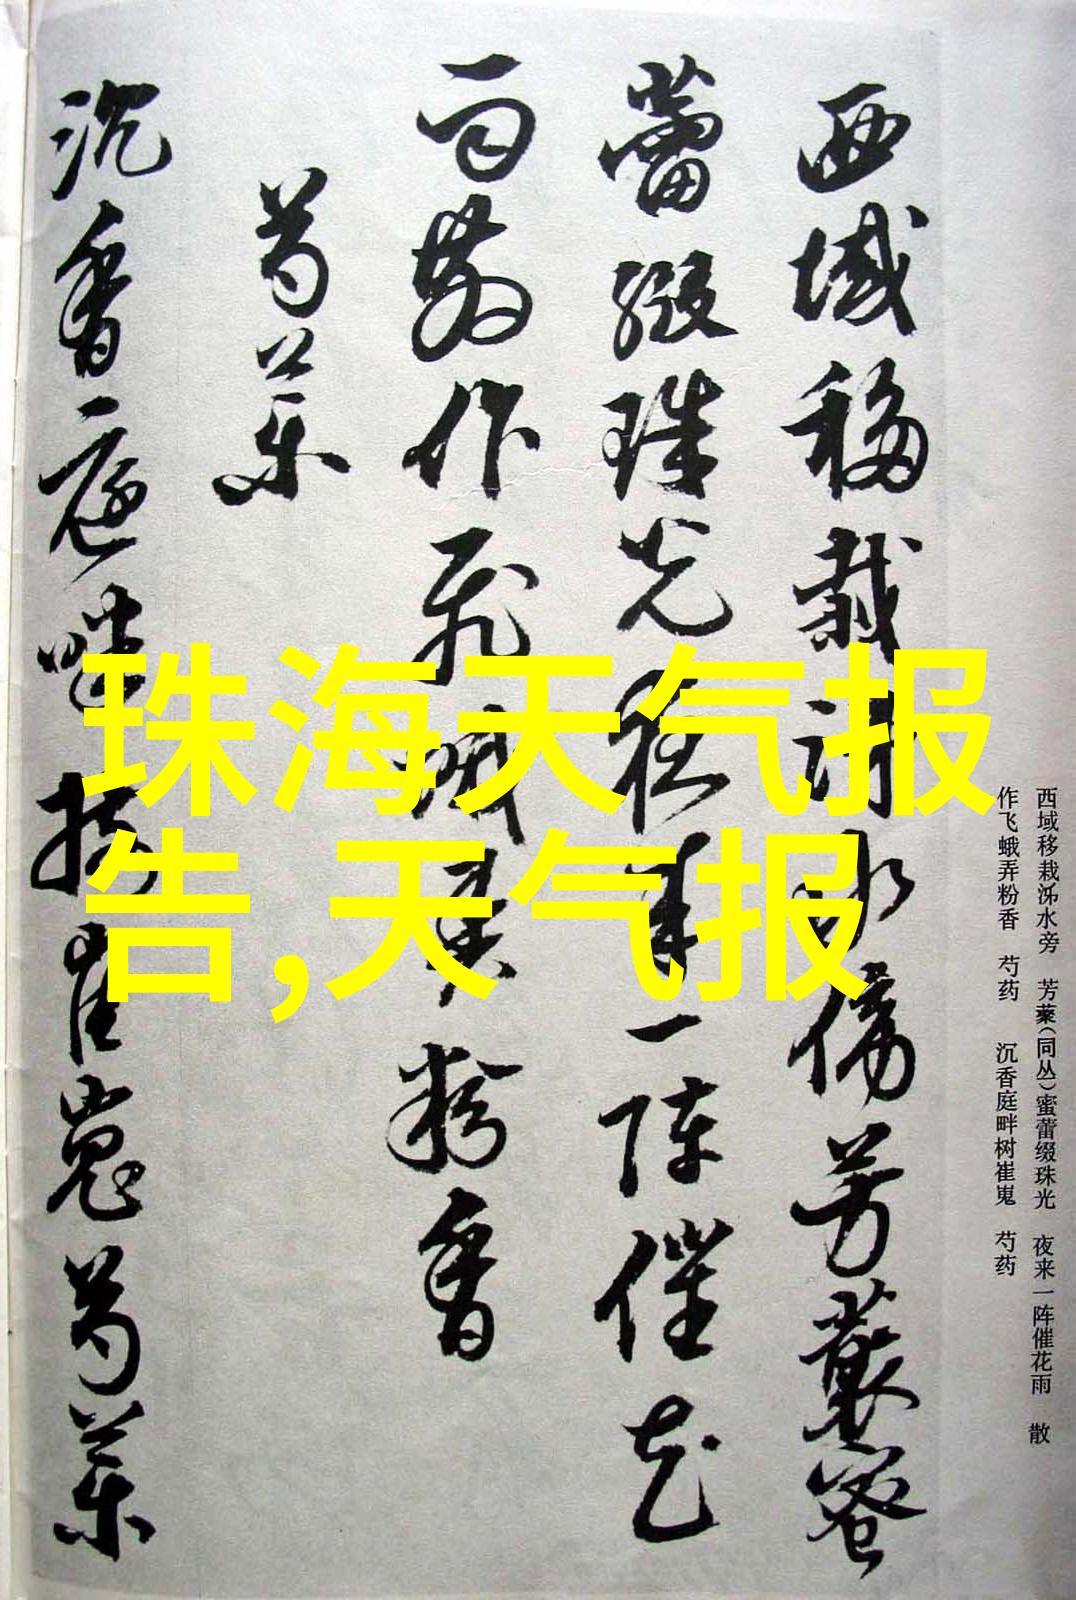 西域移栽泺水旁 芳蕖(同丛)蜜蕾缀珠光 夜来一阵催花雨 散
作飞蛾弄粉香 芍药 沉香庭畔树崔嵬 芍药
西域移栽泺水傍芳藂蜜
蕾缀珠光夜来一阵催花
雨散作飞蛾弄粉香
芍药
沉香庭畔树崔嵬芍药
珠海天气报
告,天气报